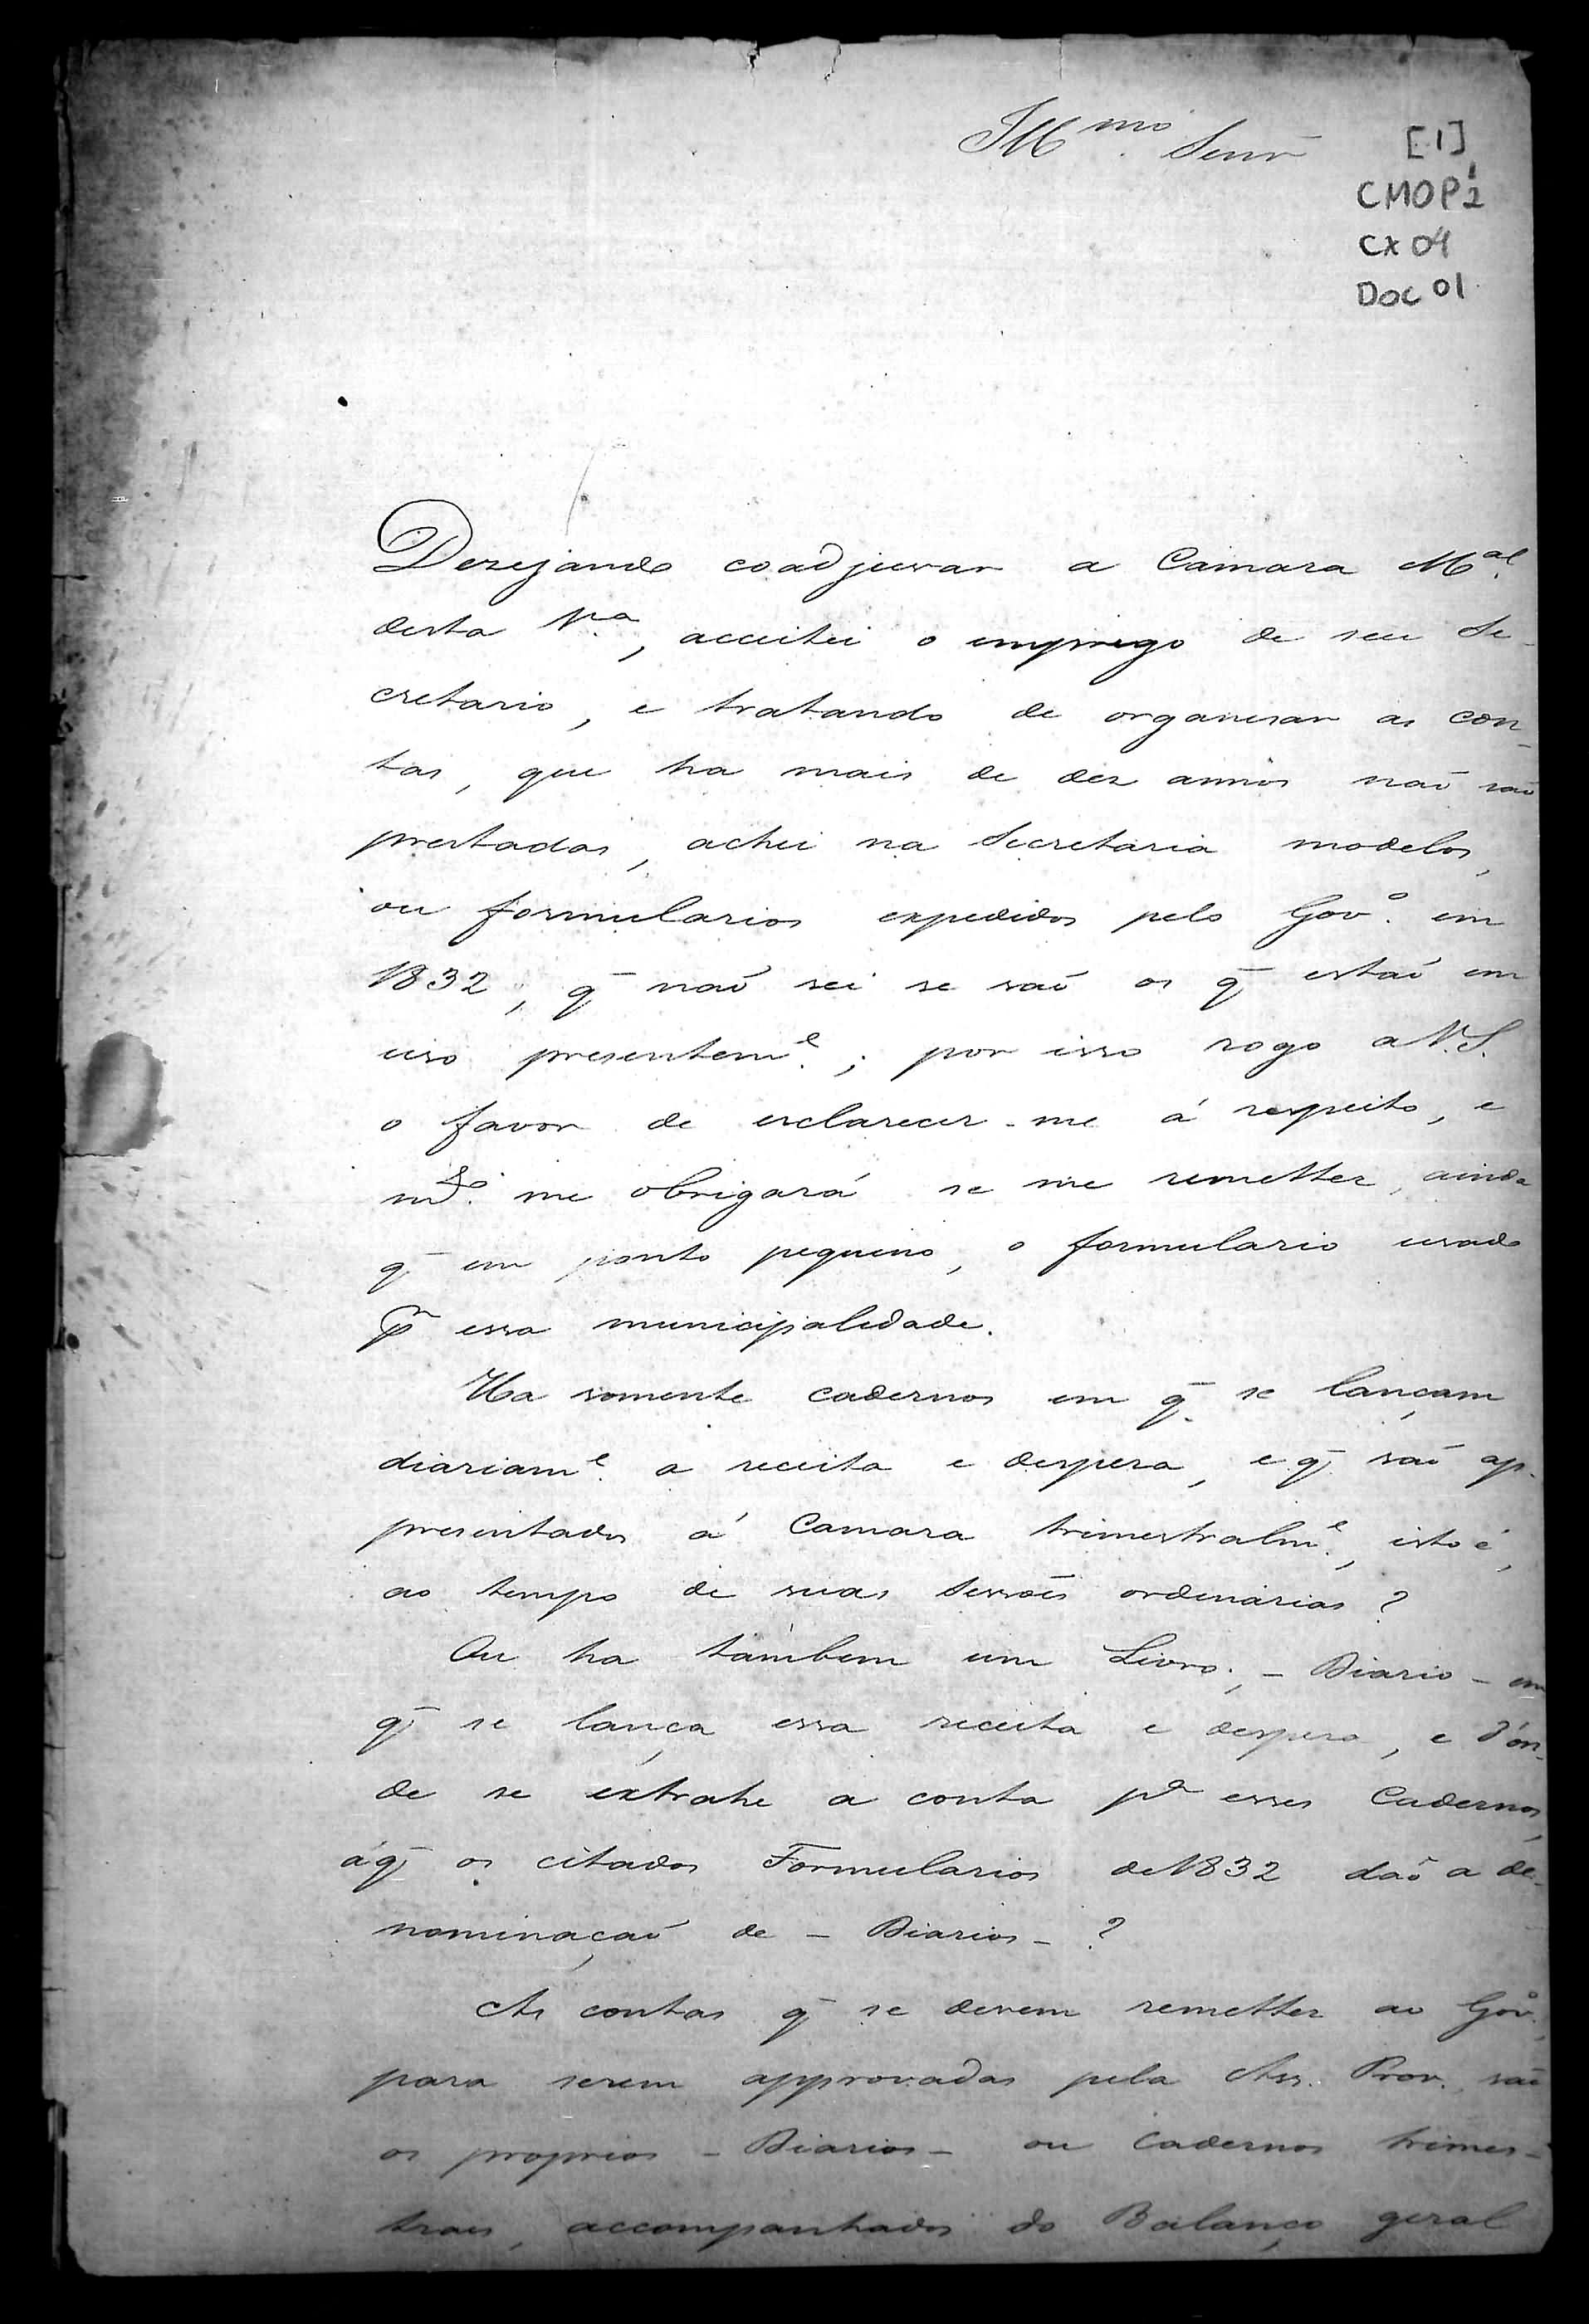 Illmo. Senr
[1]
CMOP 2
CX 04
Doc 01
Dezejando coadjuvar a Camara Mal.
desta Va., acceitei o emprego de seu Se-
cretario, e tratando de organisar as con-
tas, que ha mais de dez annos naõ saõ
prestadas, achei na Secretaria modelos,
ou formularios expedidos pelo Govo. em
1832, q̄ naõ sei se saõ os q̄ estaõ em
uso presenteme.; por isso rogo a V.S.
o favor de esclarecer-me á respeito, e
mto. me obrigará se me remetter, ainda
q̄ em ponto pequeno, o formulario usado
pr essa municipalidade.
Ha somente cadernos em q̄ se lançam
diariame. a receita e despesa, e q̄ saõ ap-
presentados á Camara trimestralme., isto é,
ao tempo de suas Sessões ordinarias?
Ou ha tambem um Livro, - Diario - em
q̄ se lança essa receita e despesa, e d'on-
de se extrahe a conta pa esses Cadernos,
á q̄ os citados Formularios de 1832 daõ a de-
nominaçaõ de - Diarios - ?
As contas q̄ se devem remetter ao Govo.,
para serem approvadas pela Ass. Prov., saõ
os proprios - Diarios - ou Cadernos trimes-
traes, accompanhados do Balanço geral